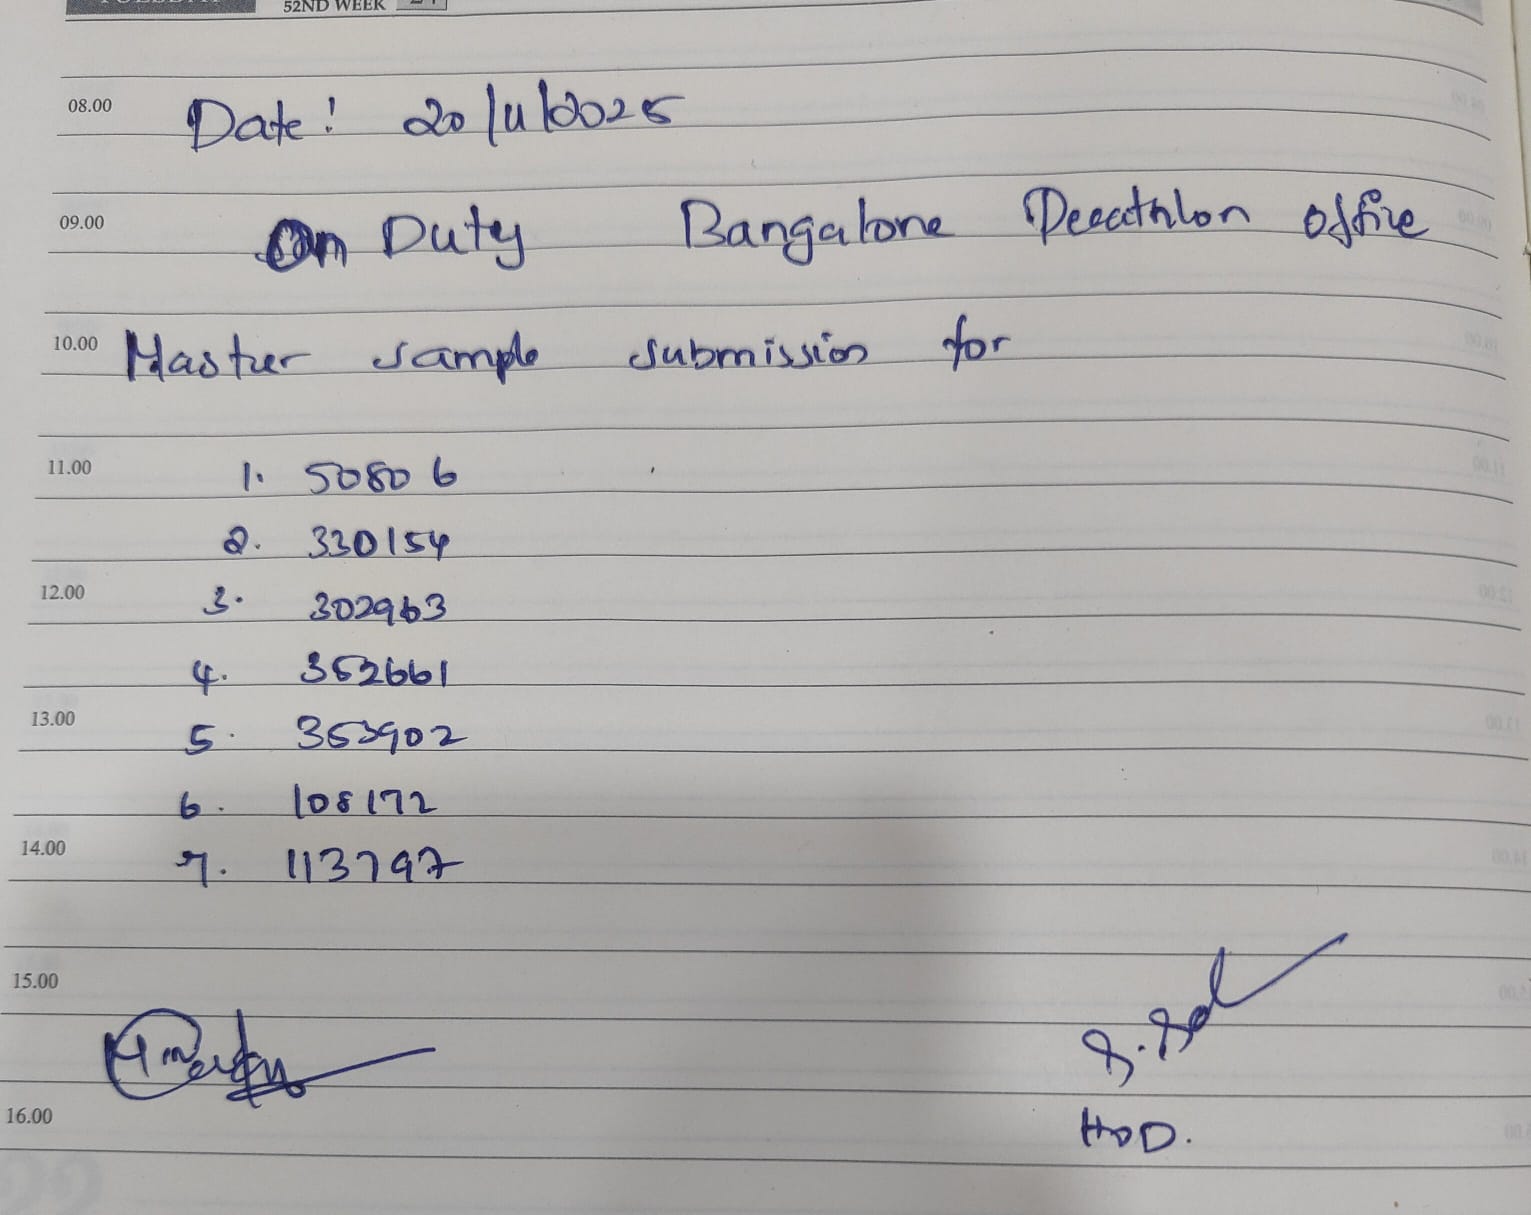 52ND WEEK
08.00 Date: 20/11/2025
09.00 On Duty Bangalore Decathlon office
10.00 Master sample submission for
11.00 1. 50806
2. 330154
12.00 3. 302963
4. 352661
13.00 5. 353902
6. 108172
14.00 7. 113797
15.00
16.00 HOD.